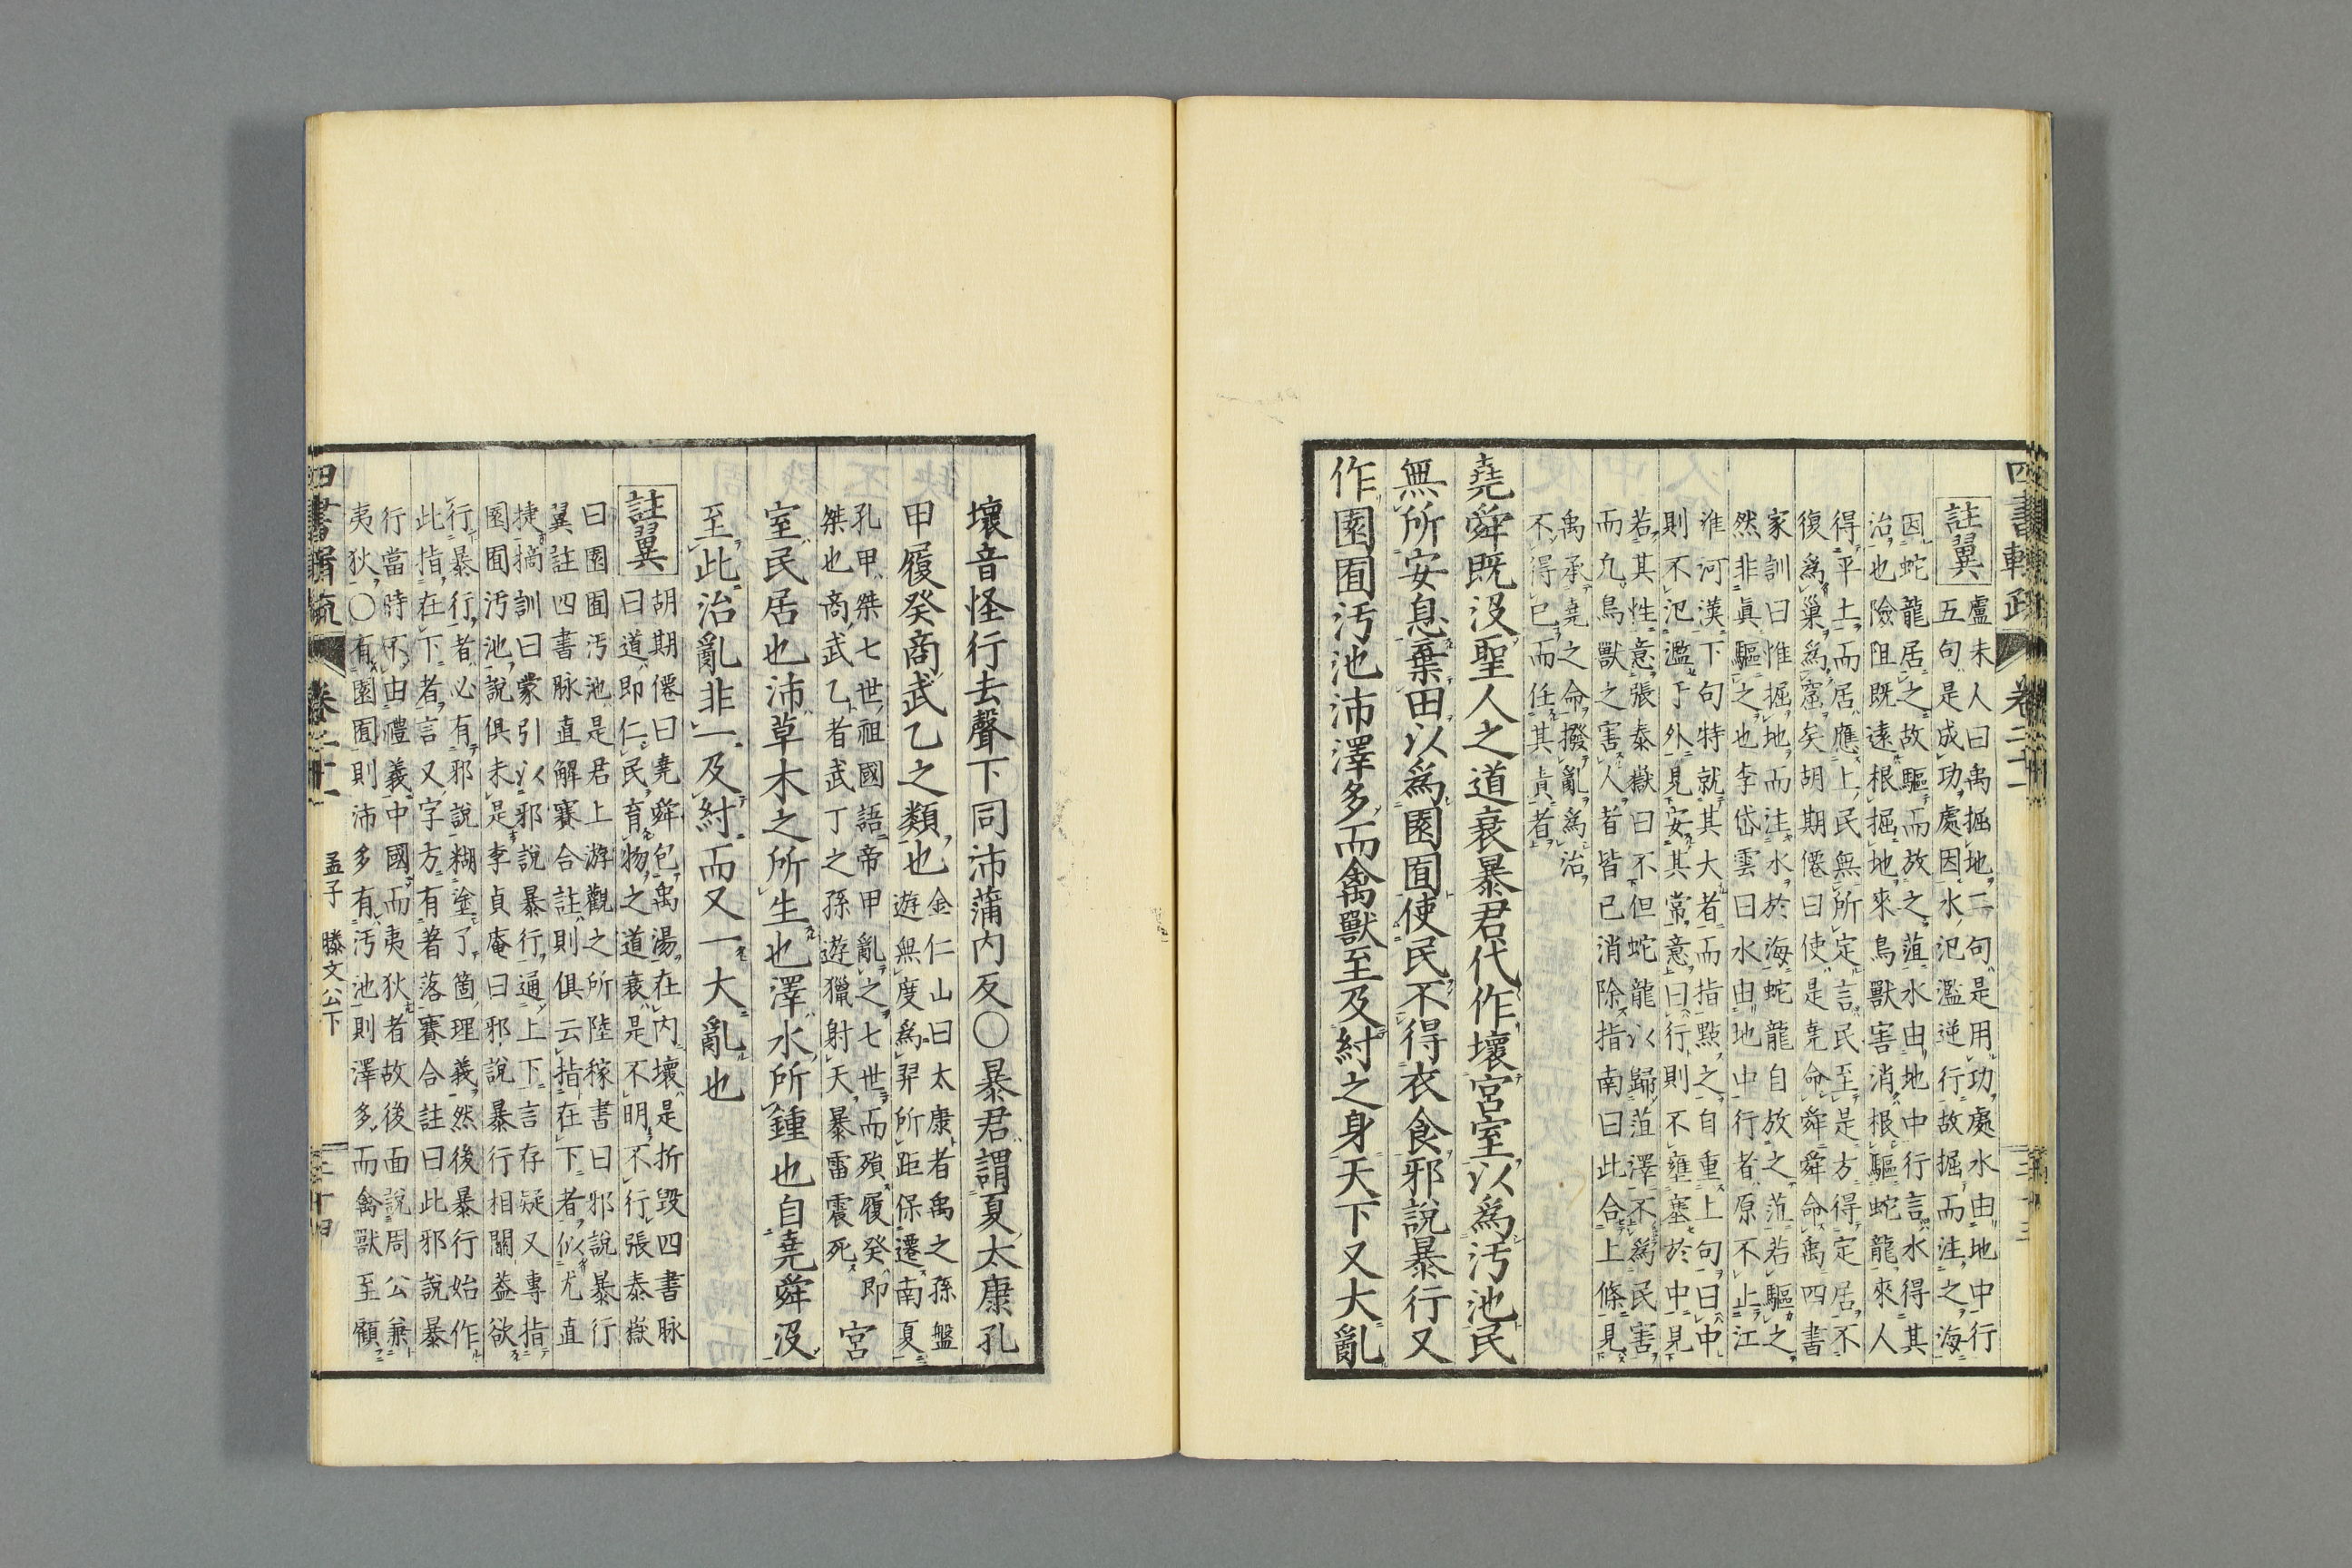 註翼
盧未人曰禹掘地二句是用功處水由地中行
五句是成功處因水氾濫逆行故掘而注之海
因蛇龍居之故驅而放之菹水由地中行言水得其
治也險阻既遠根掘地來鳥獸害消根驅蛇龍來人
得平土而居應上民無所定言民至是方得定居不
復爲巢爲窟矣胡期僊曰使是堯命舜舜命禹四書
家訓曰惟掘地而注水於海蛇龍自放之菹若驅之
然非眞驅之也李岱雲曰水由地中行者原不止江
淮河漢下句特就其大者而指點之自重上句曰中
則不氾濫于外見安其常意曰行則不壅塞於中見
若其性意張泰嶽曰不但蛇龍以歸菹澤不爲民害
而九鳥獸之害人者皆已消除指南曰此合上條見
禹承堯之命撥亂爲治
不得已而任其責者
堯舜既沒聖人之道衰暴君代作壞宮室以爲汚池民
無所安息棄田以爲園囿使民不得衣食邪說暴行又
作園囿汚池沛澤多而禽獸至及紂之身天下又大亂
壞音怪行去聲下同沛蒲内反○暴君謂夏太康孔
甲履癸商武乙之類也
金仁山曰太康者禹之孫盤
遊無度爲羿所距保遷南夏
孔甲桀七世祖國語帝甲亂之七世而殞履癸即
桀也商武乙者武丁之孫遊獵射天暴雷震死
宮
室民居也沛草木之所生也澤水所鍾也自堯舜沒
至此治亂非一及紂而又一大亂也
註翼
胡期僊曰堯舜包禹湯在内壞是折毀四書脉
曰道即仁民育物之道衰是不明不行張泰嶽
曰園囿汚池是君上游觀之所陸稼書曰邪說暴行
翼註四書脉直解賽合註則俱云指在下者似尤直
捷摘訓曰蒙引以邪說暴行通上下言存疑又專指
園囿汚池說俱未是李貞庵曰邪說暴行相關益欲
行暴行者必有邪說糊塗了箇理義然後暴行始作
此指在下者言又字方有著落賽合註曰此邪說暴
行當時不由禮義中國而夷狄者故後面說周公兼
夷狄○有園囿則沛多有汚池則澤多而禽獸至顧
卷二十一
孟子 滕文公下
二十四